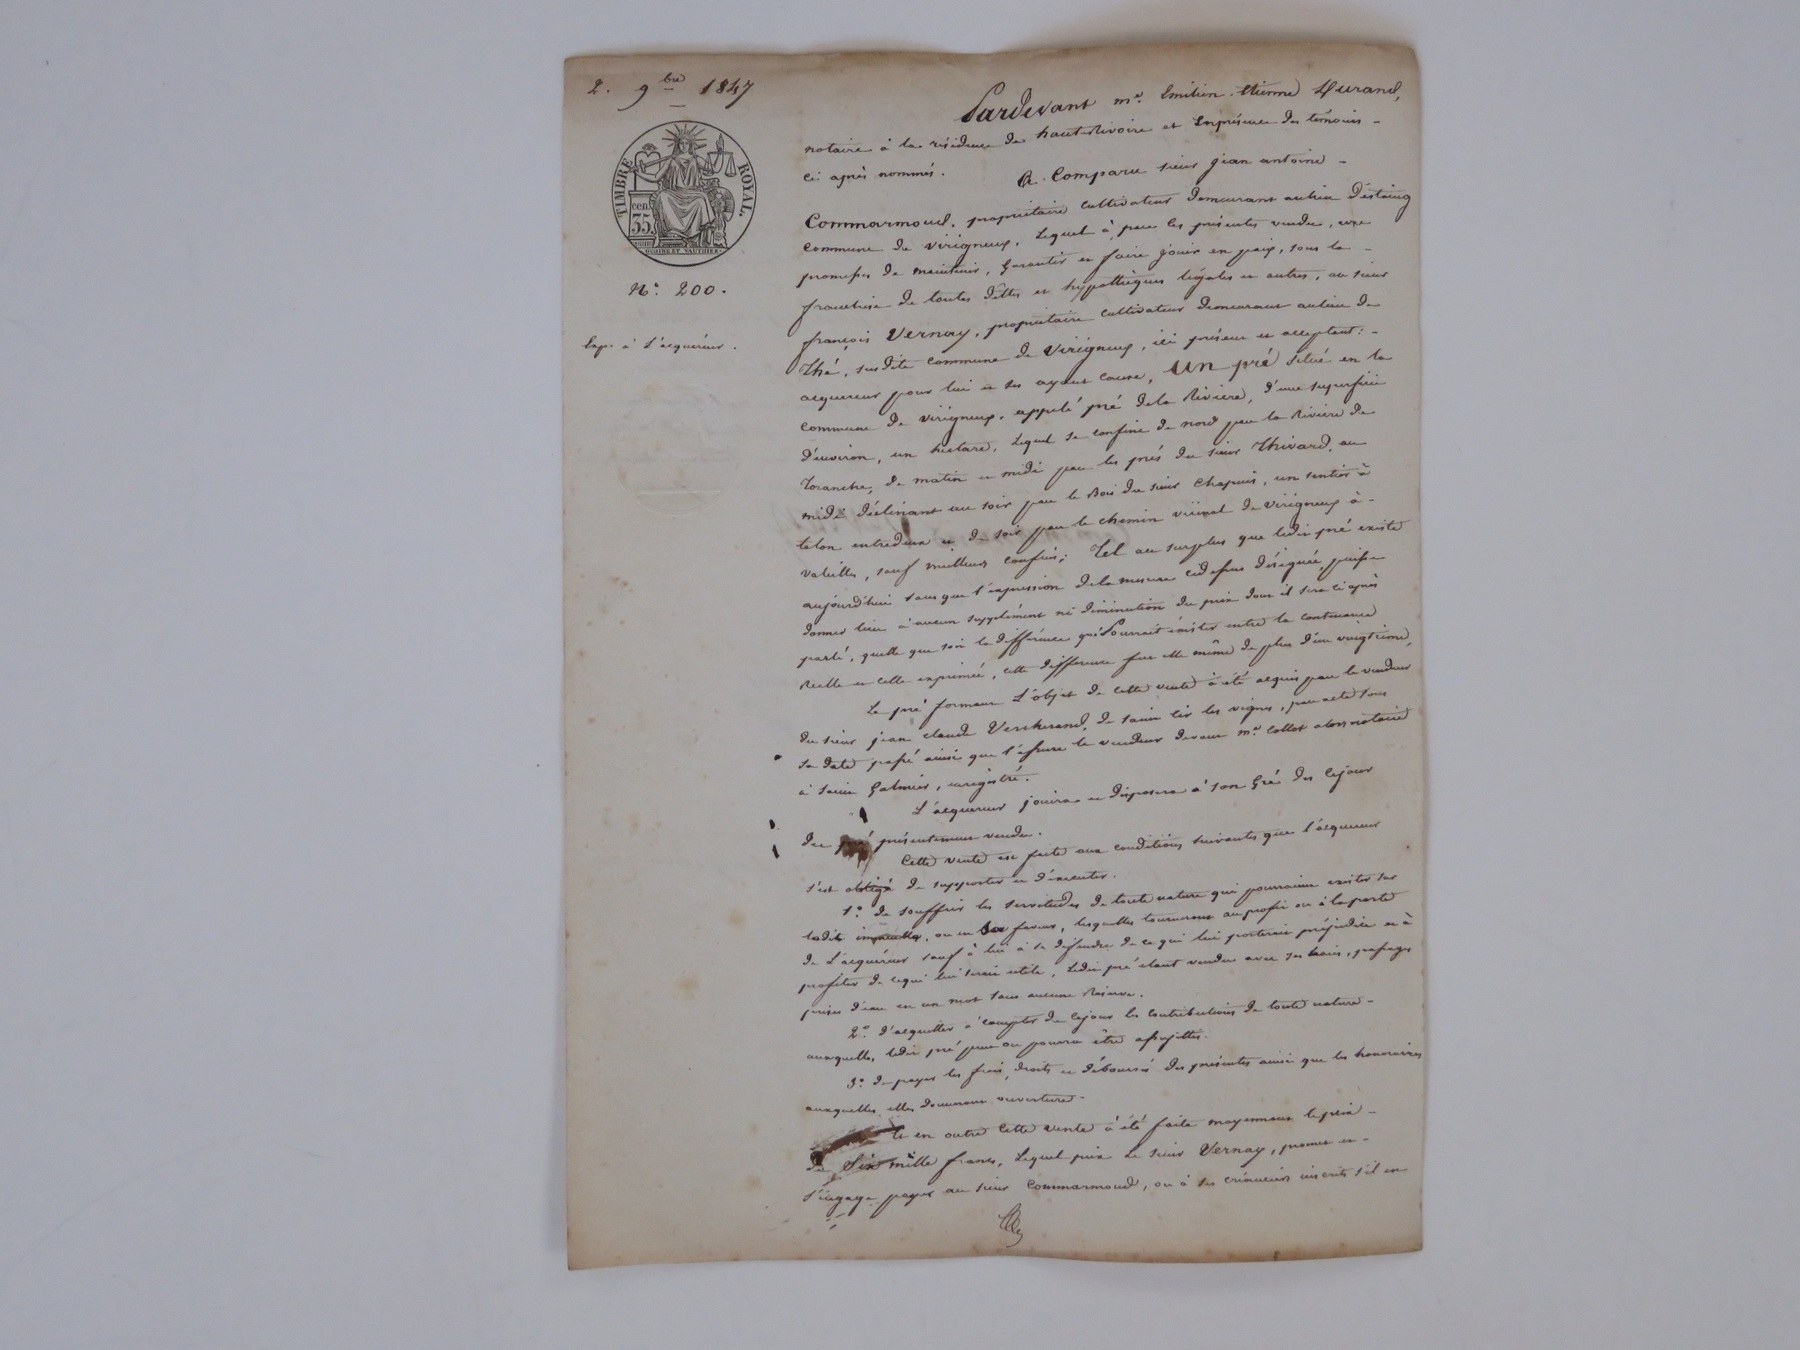 2. 9bre 1847
TIMBRE ROYAL.
cen. 35
N.° 200.
Exp. à l'acquéreur.
Pardevant me. Emilien Etienne Durand,
notaire à la résidence de haut-Rivoire et Enprésence des témoins -
ci après nommés. A Comparu sieur jean antoine -
Commarmoud, propriétaire cultivateur demeurant aulieu d'éstaing
commune de virigneux, Lequel à, par les présentes vendu, avec
promesses de maintenir, garantir et faire jouir en paix, sous la -
franchise de toutes dêttes et hypothèques légales et autres, au sieur
françois Vernay, propriétaire cultivateur demeurant aulieu de
Thé, susdite commune de Virigneux, ici présent et acceptant: -
acquereur pour lui et ses ayant cause, un pré situé en la
commune de virigneux, appelé pré dela Rivière, d'une superficie
d'environ, un hectare, Lequel se confine de nord par la Rivière de
Toranche, de matin et midi par les prés du sieur Thivard, au
midi déclinant au soir par le Bois du sieur Chapuis, un sentier à
talon entredeux et de soir par le chemin vicinal de Virigneux à -
valeilles, sauf meilleurs confins; Tel au surplus que ledit pré existe
aujourd'hui sans que l'expression dela mesure cidessus désignée, puisse
donner lieu à aucun supplément ni diminution du prix dont il sera ci après
parlé, quelle que soit la différence qui Pourrait éxister entre la contenance
réelle et celle exprimée, cette différence fut elle même de plus d'un vingtième,
Le pré formant L'objet de cette vente à été acquis par le vendeur
du sieur jean claude Vercherand, de saint Cir les vignes, par acte sous
sa date passé ainsi que l'assure le vendeur devant me. Collot alors notaire
à saint Galmier, enregistré.
L'acquereur jouira et disposera à son Gré dès Cejour
du pré présentement vendu.
Cette vente est faite aux conditions suivantes que l'acquereur
s'est obligé de supporter et d'exécuter.
1.° de souffrir les servitudes de toute nature qui pourraient exister sur
ledit immeuble, ou en sa faveur, lesquelles tourneront au profit ou à la perte
de L'acquéreur sauf à lui à se défendre de ce qui lui porterait préjudice et à
profiter de cequi lui serait utile, Ledit pré étant vendu avec ses, passages
prises d'eau en un mot sans aucune Réserve.
2.° d'acquitter à compter de cejour les contributions de toute nature -
auxquelles, ledit pré peut ou pourra être assujettis.
3.° de payer les frais, droits et déboursés des présentes ainsi que les honoraires
auxquelles elles donneront ouverture -
Et en outre Cette vente à été faite moyennant le prix -
de Six mille francs, Lequel prix le sieur Vernay, promet et -
s'engage payer au sieur Commarmoud, ou à ses créanciers inscrits s'il en